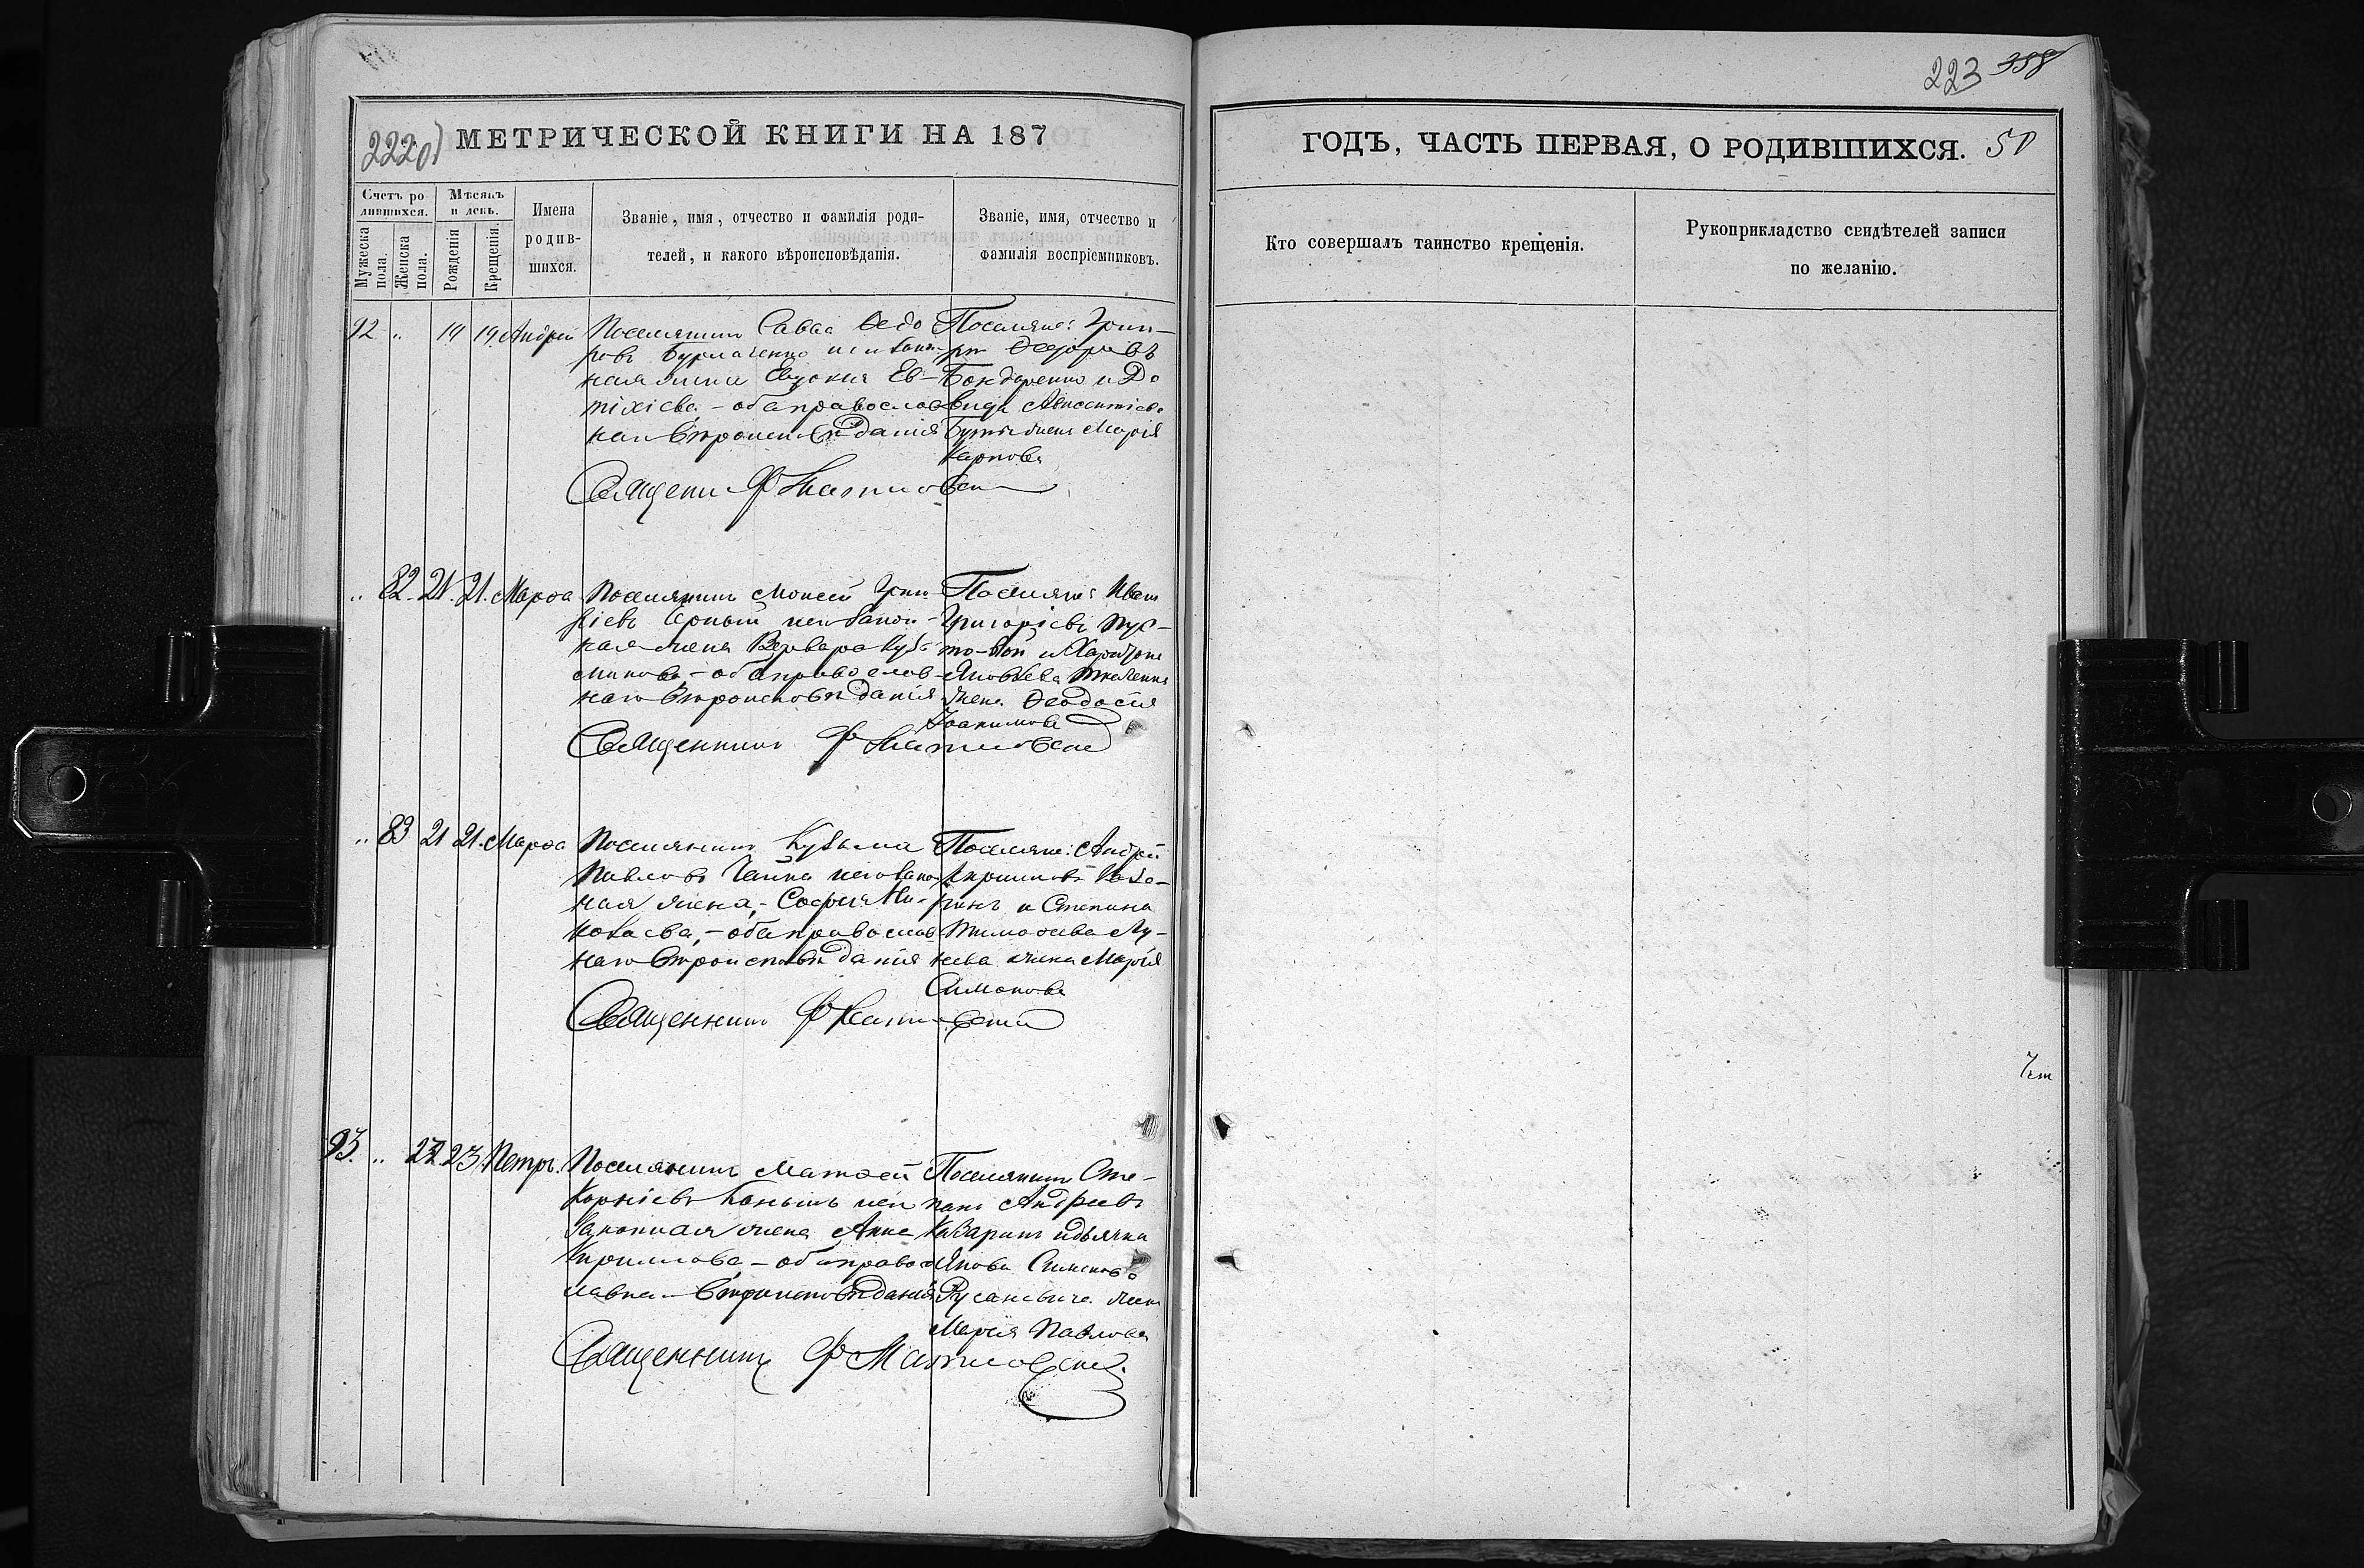 222об
МЕТРИЧЕСКОЙ КНИГИ НА 187
Счетъ ро
дившихся.
Мѣсяцъ
и день.
Мужеска
пола.
Женска
пола.
Рожденія
Крещенія.
Имена
родив-
шихся.
Званіе, имя, отчество и фамилія роди-
телей, и какого вѣроисповѣданія.
Званіе, имя, отчество и
фамилія воспріемниковъ.
92 " 19 19. Андрей
Поселянинъ Савва Ѳедо
ровъ Бурлаченко и законн
ная жена Евдокія Ев-
тихіева - оба православ
наго вѣроисповѣданія
Поселяне: Григо-
рій Ѳедоровъ
Бондаренко и Да
вида
жена Марія
Карпова
Священникъ Ф
" 82. 21. 21. Марѳа
Поселянинъ Моисей Григо
ріевъ Черный и его закон-
ная жена Варвара Кузь
минова, - оба православ-
наго вѣроисповѣданія
Поселяне: Иванъ
Григоріевъ Пус-
то-вой и Харитона
Яковлева Ткаченка
жена Ѳеодосія
Іоакимова
Священникъ Ф
" 83 21 21. Марѳа
Поселянинъ Кузьма
Павловъ Чайка и его закон
ная жена, - Софія Ни-
колаева, - оба православ
наго вѣроисповѣданія
Поселяне: Андрей
Кирилловъ Каза-
ринъ и Степана
Тимоѳеева Лу-
нева жена Марія
Симонова
Священникъ Ф
93. " 22. 23. Петръ.
Поселянинъ Матѳей
Корніевъ и его
законная жена Анна
Кириллова, - оба правос
лавна вѣроисповѣданія
Поселянинъ Сте-
панъ Андреевъ
Казаринъ и дьячка
Якова Симонова
Русановича жена
Марія Павлова
Священникъ Ф
223 358
ГОДЪ, ЧАСТЬ ПЕРВАЯ, О РОДИВШИХСЯ. 50
Кто совершалъ таинство крещенія.
Рукоприкладство свидѣтелей записи
по желанію.